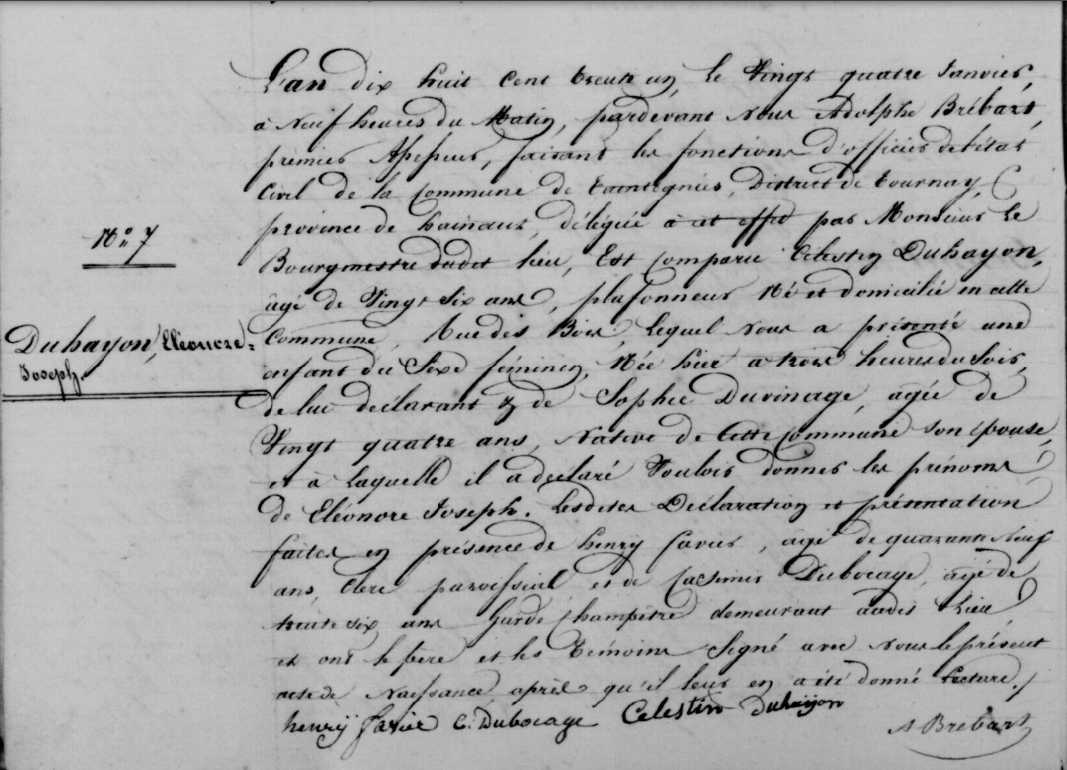 L'an dix huit cent trente un, le Vingt quatre Janvier,
à Neuf heures du Matin, pardevant Nous Adolphe Brébart,
premier Assesseur, faisant les fonctions d'officier de l'état
Civil de la Commune de Taintegnies, District de Tournay,
province de hainaut, délégué à cet effet par Monsieur le
N.º 7
Bourgmestre dudit lieu, Est Comparu Célestin Duhayon,
âgé de Vingt Six ans, plafonneur Né et domicilié en cette
Duhayon, Eléonore=
Joseph.
Commune, Rue des Bois, lequel Nous a présenté une
enfant du Sexe féminin, Née hier a trois heures du Soir,
de lui déclarant & de Sophie Duvinage, agée de
Vingt quatre ans, Native de Cette Commune son épouse,
et à Laquelle il a déclaré Vouloir donner les prénoms
de Eléonore Joseph. Lesdites Déclaration et présentation
faites en présence de henry favier, agé de quarante Neuf
ans, Clerc paroissial et de Casimir Dubocage, agé de
trente six ans Garde Champêtre demeurant audit Lieu
et ont le père et les Témoins Signé avec Nous le présent
acte de Naissance après qu'il leur en a été donné Lecture.
henrÿ favier C. Dubocage Celestin duhaijon
A Brébart